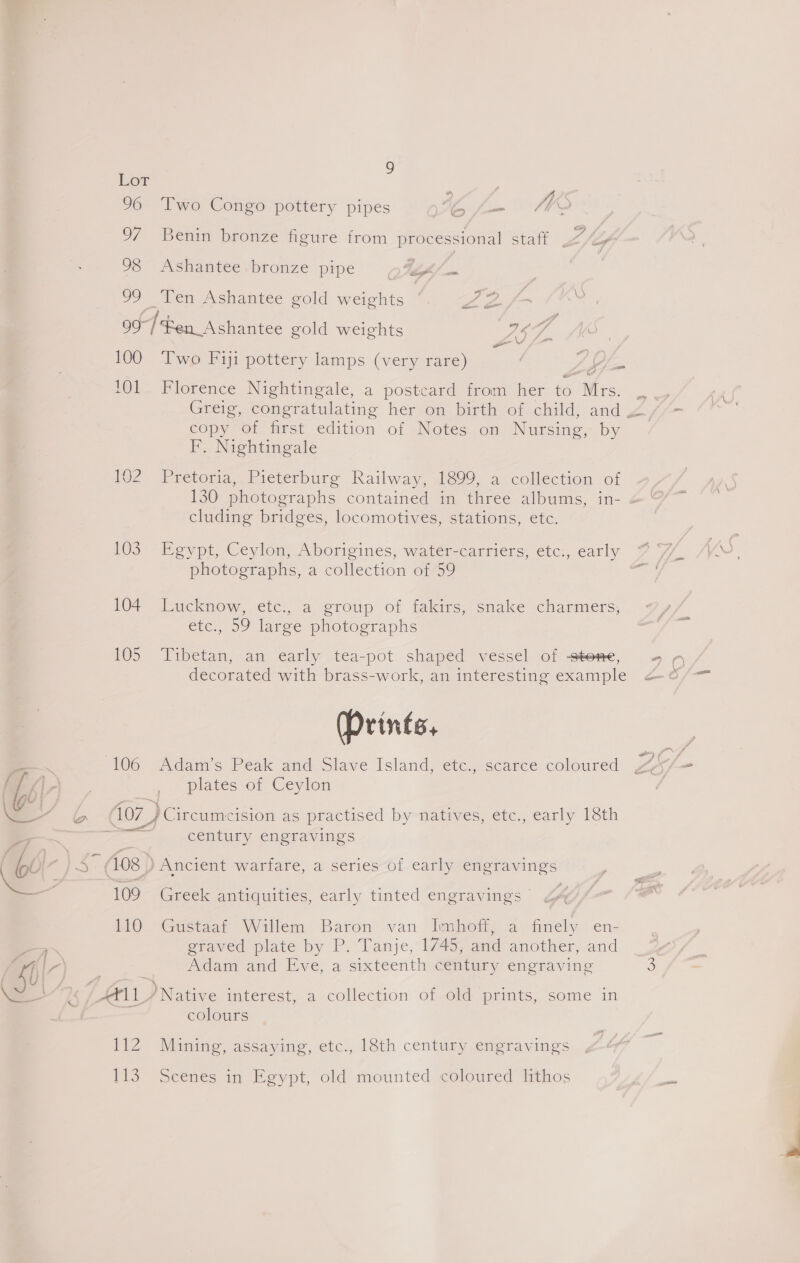 9
Lot
96 Two Congo pottery pipes
97 Benin bronze figure from processional staff
98 Ashantee bronze pipe
99 Ten Ashantee gold weights
99 / Ten Ashantee gold weights
100 Two Fiji pottery lamps (very rare)
101 Florence Nightingale, a postcard from her to Mrs.
Greig, congratulating her on birth of child, and
copy of first edition of Notes on Nursing, by
F. Nightingale
102 Pretoria, Pieterburg Railway, 1899, a collection of
130 photographs contained in three albums, in-
cluding bridges, locomotives, stations, etc.
103 Egypt, Ceylon, Aborigines, water-carriers, etc., early
photographs, a collection of 59
104 Lucknow, etc., a group of fakirs, snake charmers,
etc., 59 large photographs
105 Tibetan, an early tea-pot shaped vessel of stone,
decorated with brass-work, an interesting example
Prints.
106 Adam's Peak and Slave Island, etc., scarce coloured
plates of Ceylon
107 Circumcision as practised by natives, etc., early 18th
century engravings
108 Ancient warfare, a series of early engravings
109 Greek antiquities, early tinted engravings
110 Gustaaf Willem Baron van Imhoff, a finely en-
graved plate by P. Tanje, 1745, and another, and
Adam and Eve, a sixteenth century engraving
111 Native interest, a collection of old prints, some in
colours
112 Mining, assaying, etc., 18th century engravings
113 Scenes in Egypt, old mounted coloured lithos